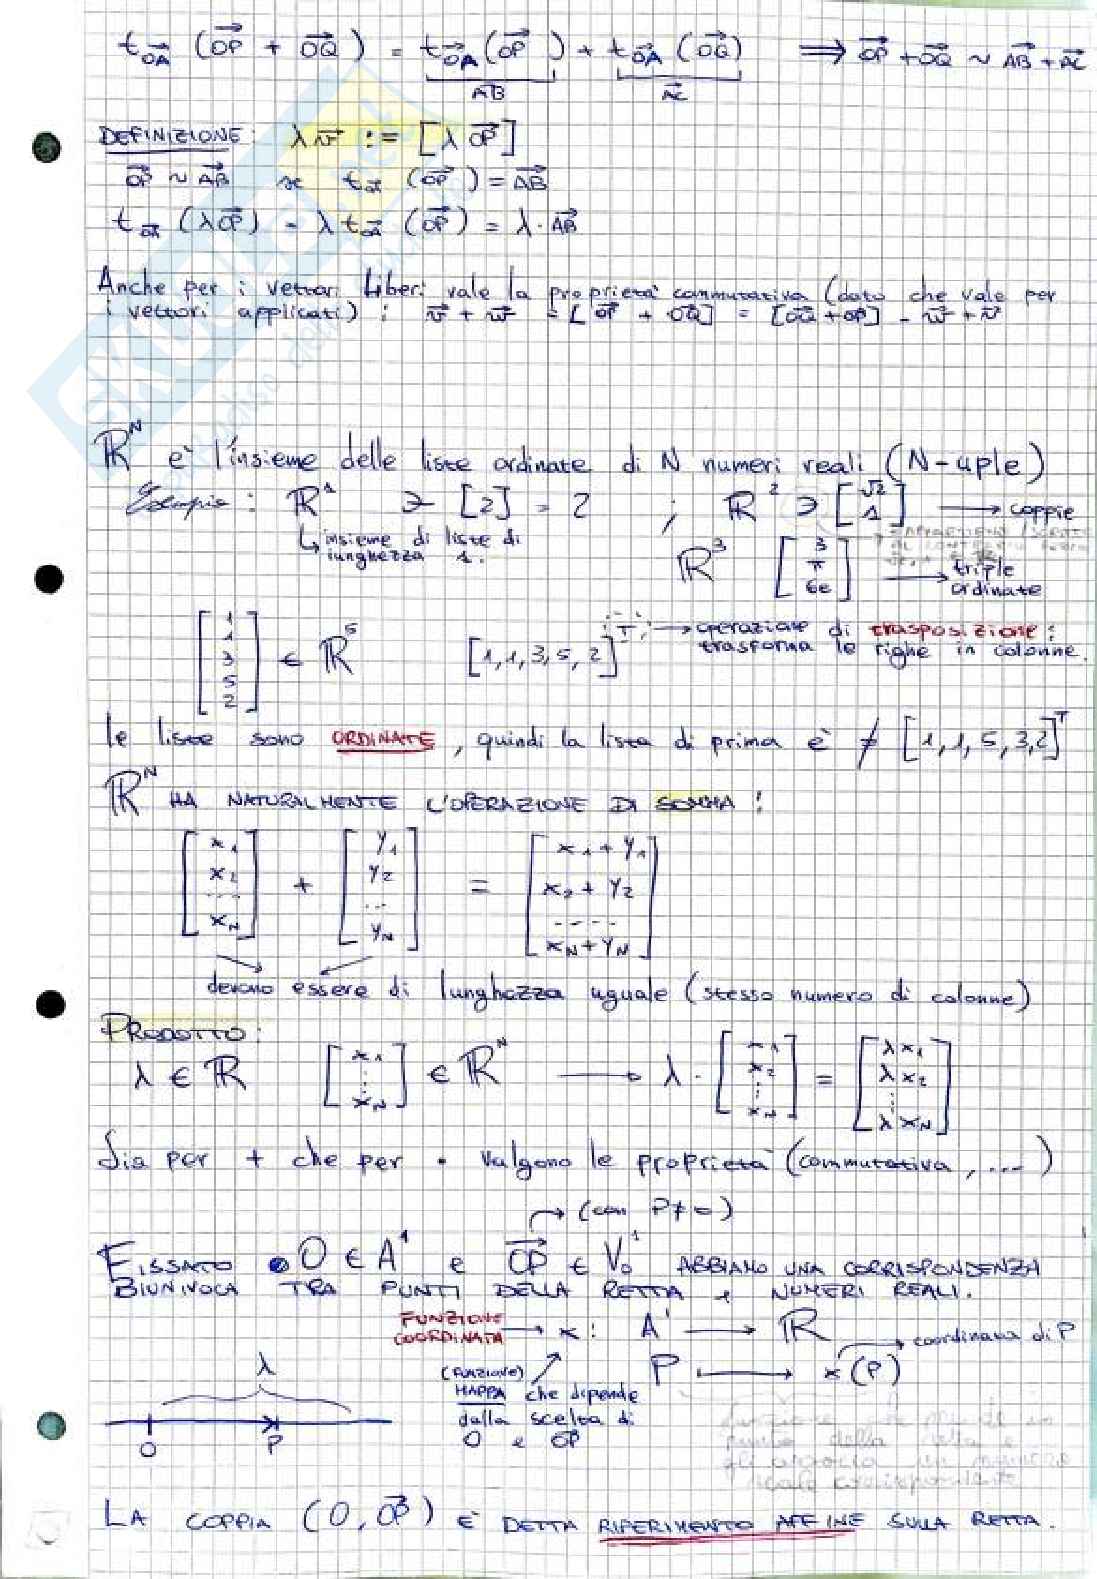 t_OA→ (OP→ + OQ→) = t_OA→(OP→) + t_OA→(OQ→) ⟹ OP→ + OQ→ ~ AB→ + AC→
AB→ AC→
DEFINIZIONE: λv→ := [λ OP→]
OP→ ~ AB→ se t_OA→ (OP→) = AB→
t_OA→ (λOP→) = λ t_OA→ (OP→) = λ · AB→
Anche per i vettori liberi vale la proprietà commutativa (dato che vale per
i vettori applicati): v→ + w→ = [OP→ + OQ→] = [OQ→ + OP→] = w→ + v→
ℝᴺ è l'insieme delle liste ordinate di N numeri reali (N-uple)
Esempio: ℝ¹ ∋ [2] = 2 ; ℝ² ∋ [√2 1] → coppie
↳ insieme di liste di
lunghezza 1.
ℝ³ [3 π 6e] → triple
ordinate
[1 1 3 5 2] ∈ ℝ⁵ [1,1,3,5,2]ᵀ → operazione di trasposizione:
trasforma le righe in colonne.
Le liste sono ORDINATE, quindi la lista di prima è ≠ [1,1,5,3,2]ᵀ
ℝᴺ HA NATURALMENTE L'OPERAZIONE DI SOMMA:
[x₁ x₂ ... x_N] + [y₁ y₂ ... y_N] = [x₁+y₁ x₂+y₂ .... x_N+y_N]
devono essere di lunghezza uguale (stesso numero di colonne)
PRODOTTO:
λ ∈ ℝ [x₁ ⋮ x_N] ∈ ℝᴺ → λ · [x₁ x₂ ⋮ x_N] = [λx₁ λx₂ ⋮ λx_N]
Sia per + che per · valgono le proprietà (commutativa, ....)
→ (con P≠O)
FISSATO O ∈ A¹ e OP→ ∈ V₀¹ ABBIAMO UNA CORRISPONDENZA
BIUNIVOCA TRA PUNTI DELLA RETTA e NUMERI REALI.
FUNZIONE
COORDINATA → x: A¹ → ℝ
P ↦ x(P) → coordinata di P
(FUNZIONE)
MAPPA che dipende
dalla scelta di
O e OP→
λ
O P
LA COPPIA (O, OP→) È DETTA RIFERIMENTO AFFINE SULLA RETTA.